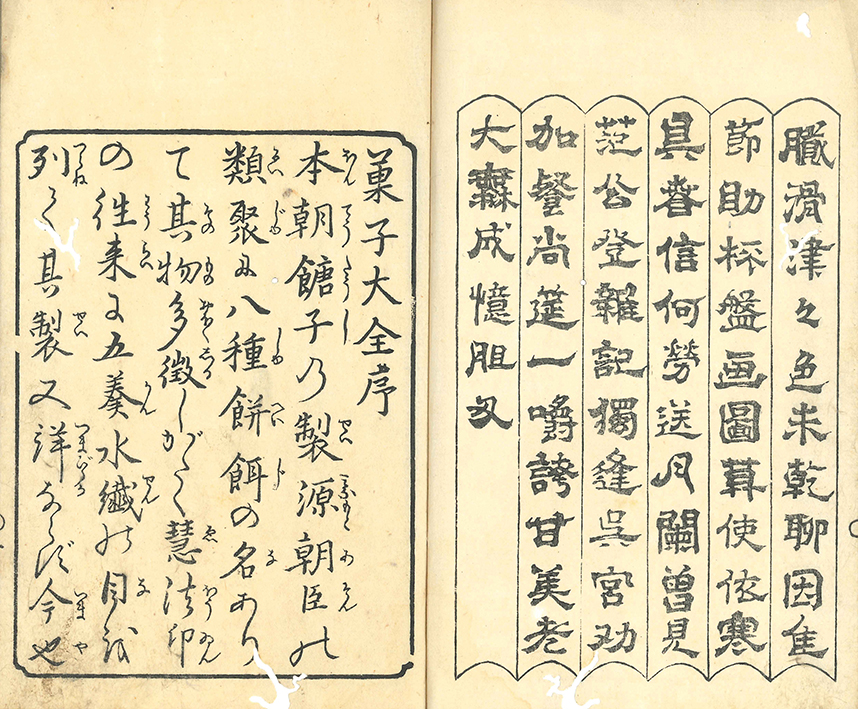 膩滑津々色未乾聊因佳
節助杯盤画圖使依寒
具眷信何勞送月闌曾見
范公登雜記獨逢呉宮劝
加餐尚莚一嚼誇甘美老
大成憶胆
菓子大全序
本朝餹子乃製源朝臣の
類聚に八種餅餌の名あり
て其物多徴しがたく慧法印
の往来に五羹水纎の目を
列て其製又詳ならず今也